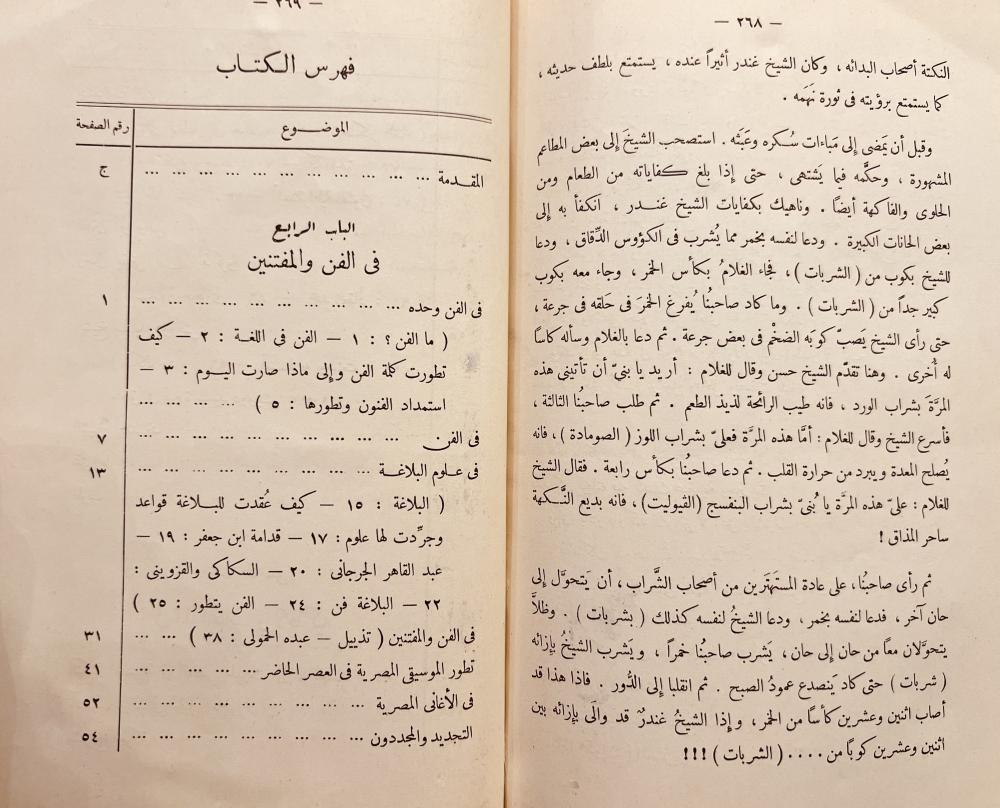 — ٢٦٨ —
النكتة أصحاب البدائه ، وكان الشيخ غندر أثيراً عنده ، يستمتع بلطف حديثه ،
كما يستمتع برؤيته فى ثورة نَهَمه .
وقبل أن يَمضى إلى مَباءات سُكره وعَبَثه . استصحب الشيخَ إلى بعض المطاعم
المشهورة ، وحكَّمه فيما يَشتهى ، حتى إذا بلغ كفاياته من الطعام ومن
الحلوى والفاكهة أيضاً . وناهيك بكفايات الشيخ غندر ، انكفأ به إلى
بعض الحانات الكبيرة . ودعا لنفسه بخمر مما يُشرب فى الكؤوس الدِّقاق ، ودعا
للشيخ بكوب من ( الشربات ) ، فجاء الغلامُ بكأس الخمر ، وجاء معه بكوب
كبير جداً من ( الشربات ) . وما كاد صاحبنُا يُفرغ الخمرَ فى حَلقه فى جرعة ،
حتى رأى الشيخ يَصبّ كوبَه الضخْم فى بعض جرعة . ثم دعا بالغلام وسأله كاسًا
له أُخرى . وهنا تقدّم الشيخ حسن وقال للغلام : أريد يا بنىّ أن تأتينى هذه
المرَّة بشراب الورد ، فانه طيب الرائحة لذيذ الطعم . ثم طلب صاحبنُا الثالثة ،
فأسرع الشيخ وقال للغلام : أمَّا هذه المرَّة فعلىّ بشراب اللوز ( الصومادة ) ، فانه
يُصلح المعدة ويبرد من حرارة القلب . ثم دعا صاحبنُا بكأس رابعة . فقال الشيخ
للغلام : علىّ هذه المرَّة يا بُنىّ بشراب البنفسج (الڤيوليت) ، فانه بديع النَّكهة
ساحر المذاق !
ثم رأى صاحبنُا ، على عادة المستَهتَرين من أصحاب الشَّراب ، أن يَتحوّل إلى
حان آخر ، فدعا لنفسه بخمر ، ودعا الشيخُ لنفسه كذلك ( بشربات ) . وظلاَّ
يتحوّلان معاً من حان إلى حان ، يَشرب صاحبنُا خمراً ، ويَشرب الشيخُ بإزائه
( شربات ) حتى كاد يَنصدع عمودُ الصبح . ثم انقلبا إلى الدُّور . فاذا هذا قد
أصاب اثنين وعشرين كأساً من الخمر ، وإذا الشيخُ غندرٌ قد والَى بإزائه بين
اثنين وعشرين كوبًا من .... ( الشربات ) !!!
— ٢٦٩ —
فهرس الكتاب
الموضوع رقم الصفحة
المقدمة ... ... ... ... ... ... ... ... ... ... ... ج
الباب الرابع
فى الفن والمفتنين
فى الفن وحده ... ... ... ... ... ... ... ... ... ... ١
( ما الفن ؟ : ١ — الفن فى اللغة : ٢ — كيف
تطورت كلمة الفن وإلى ماذا صارت اليوم : ٣ —
استمداد الفنون وتطورها : ٥ ) ... ... ... ...
فى الفن ... ... ... ... ... ... ... ... ... ... ٧
فى علوم البلاغة ... ... ... ... ... ... ... ... ... ١٣
( البلاغة : ١٥ — كيف عُقدت للبلاغة قواعد
وجرِّدت لها علوم : ١٧ — قدامة ابن جعفر : ١٩ —
عبد القاهر الجرجانى : ٢٠ — السكاكى والقزوينى :
٢٢ — البلاغة فن : ٢٤ — الفن يتطور : ٢٥ )
فى الفن والمفتنين ( تذييل — عبده الحمولى : ٣٨ ) ... ... ٣١
تطور الموسيقى المصرية فى العصر الحاضر ... ... ... ... ... ٤١
فى الأغانى المصرية ... ... ... ... ... ... ... ... ... ٥٢
التجديد والمجددون ... ... ... ... ... ... ... ... ... ٥٤